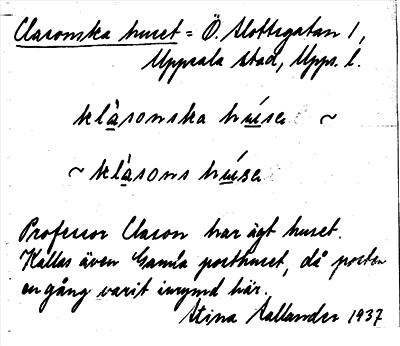 Clasonska huset = Ö. Slottsgatan 1,
Uppsala stad, Upps. l.
klàsonska húsə ~
~ klàsons húsə
Professor Clason har ägt huset.
Kallas även Gamla posthuset, då posten
en gång varit inrymd här.
Stina Sallander 1937